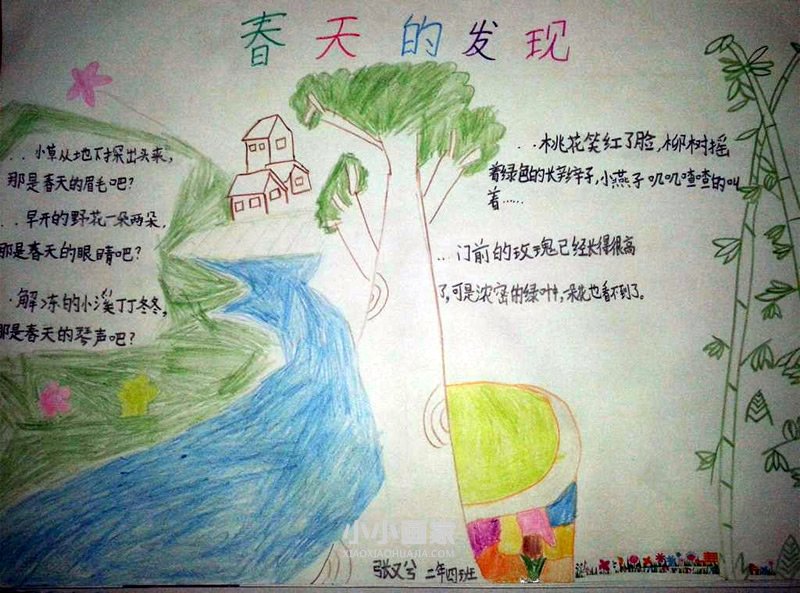 春天的发现
..小草从地下探出头来,
那是春天的眉毛吧?
..早开的野花一朵两朵,
那是春天的眼睛吧?
·解冻的小溪丁丁冬冬,
那是春天的琴声吧?
..桃花笑红了脸,柳树摇
着绿色的长辫子,小燕子叽叽喳喳的叫
着……
...门前的玫瑰已经长得很高
了,可是浓密的绿叶,朵花也看不到了。
小小画家
XIAOXIAOHUAJIA.COM
二年四班